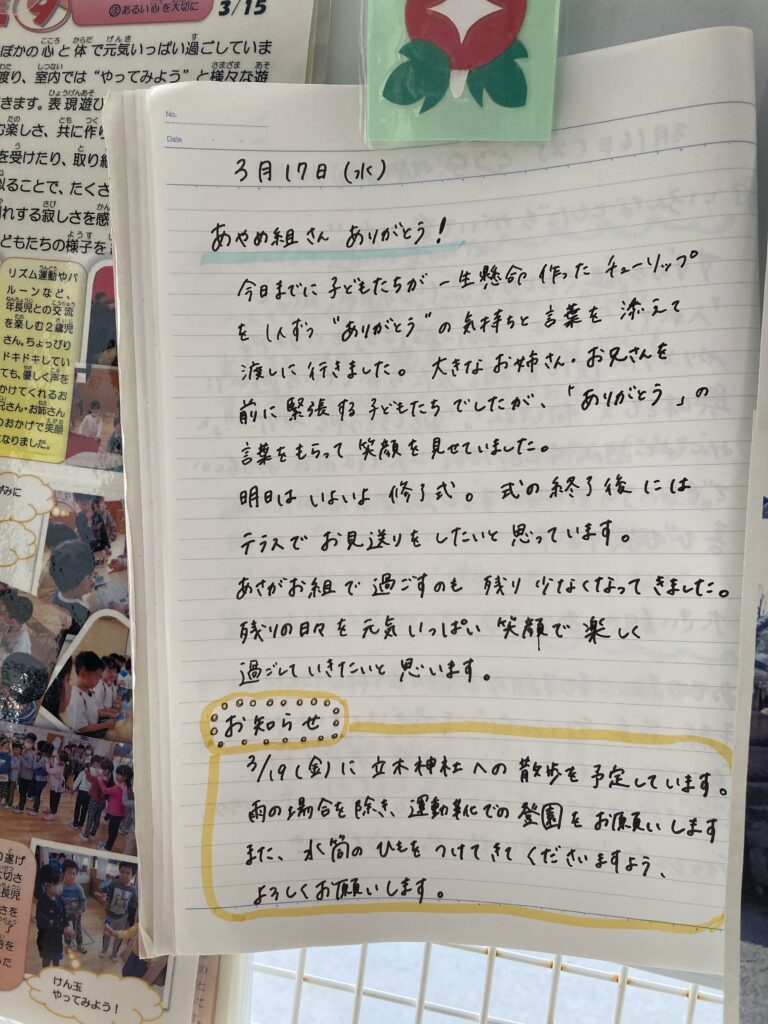 あるい心を大切に
3/15
ぽかの心と体で元気いっぱい過ごしていま
渡り、室内では“やってみよう”と様々な遊
きます。表現遊び
楽しさ、共に作り
を受けたり、取り組
ることで、たくさ
れする寂しさを感
どもたちの様子を
リズム運動やバ
ルーンなど、
年長児との交流
を楽しむ2歳児
さん。ちょっぴり
ドキドキしてい
ても、優しく声を
かけてくれるお
兄さん・お姉さん
のおかげで笑顔
になりました。
けん玉
やってみよう!
No.
Date
3月17日(水)
あやめ組さん ありがとう!
今日までに子どもたちが一生懸命作ったチューリップ
を1人ずつ“ありがとう”の気持ちと言葉を添えて
渡しに行きました。大きなお姉さん・お兄さんを
前に緊張する子どもたちでしたが、「ありがとう」の
言葉をもらって笑顔を見せていました。
明日はいよいよ修了式。式の終了後には
テラスでお見送りをしたいと思っています。
あさがお組で過ごすのも残り少なくなってきました。
残りの日々を元気いっぱい笑顔で楽しく
過ごしていきたいと思います。
お知らせ
3/19(金)に立木神社への散歩を予定しています。
雨の場合を除き、運動靴での登園をお願いします
また、水筒のひもをつけてきてくださいますよう、
よろしくお願いします。